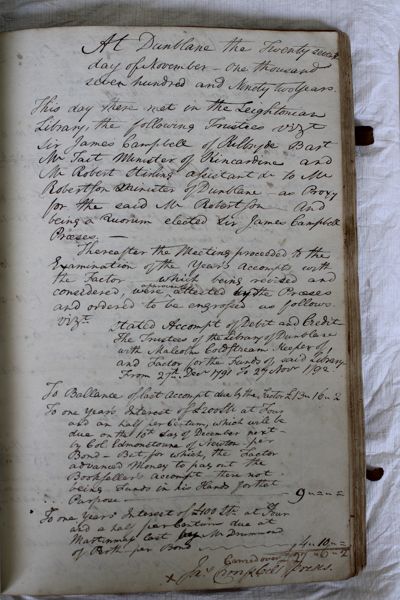 At Dunblane the Twenty seventh
day of November - One thousand
seven hundred and Ninety two Years.
This day there met in the Leightonian
Library, the following Trustees vizt
Sir James Campbell of Kilbryde Bart
Mr Tait Minister of Kincardine and
Mr Robert Stirling assistant to Mr
Robertson Minister of Dunblane as Proxy
for the said Mr Robertson And
being a Quorum elected Sir James Campbell
Præses. —
Thereafter the Meeting proceeded to the
Examination of the Years Accompts with
the Factor which being revised and
considered, were attested by the Præses
and ordered to be engrossed as follows.
vizt.
Stated Accompt of Debit and Credit
The Trustees of the Library of Dunblane
with Malcolm Coldstream Keeper of
and Factor for the Funds of said Library
From 27th Decr 1791 To 27 Novr 1792
To Ballance of last Accompt due by the Factor £13 - 16 - 2
To one years Interest of £200 Str at Four
and an half per Centum, which will be
due on the 15th day of December next -
by Col. Edmonstoune of Newton per
Bond - But for which, the Factor
advanced Money to pay out the
Booksellers accompt there not
being Funds in his Hands for that
Purpose 9 " - " =
To one years Interest of £100 Str at Four
and a half per Centum due at
Martinmas last by Mr Drummond
of Perth per Bond 4 - 10 - =
Carried over £27 - 6 - 2
Jas Campbell Præses.